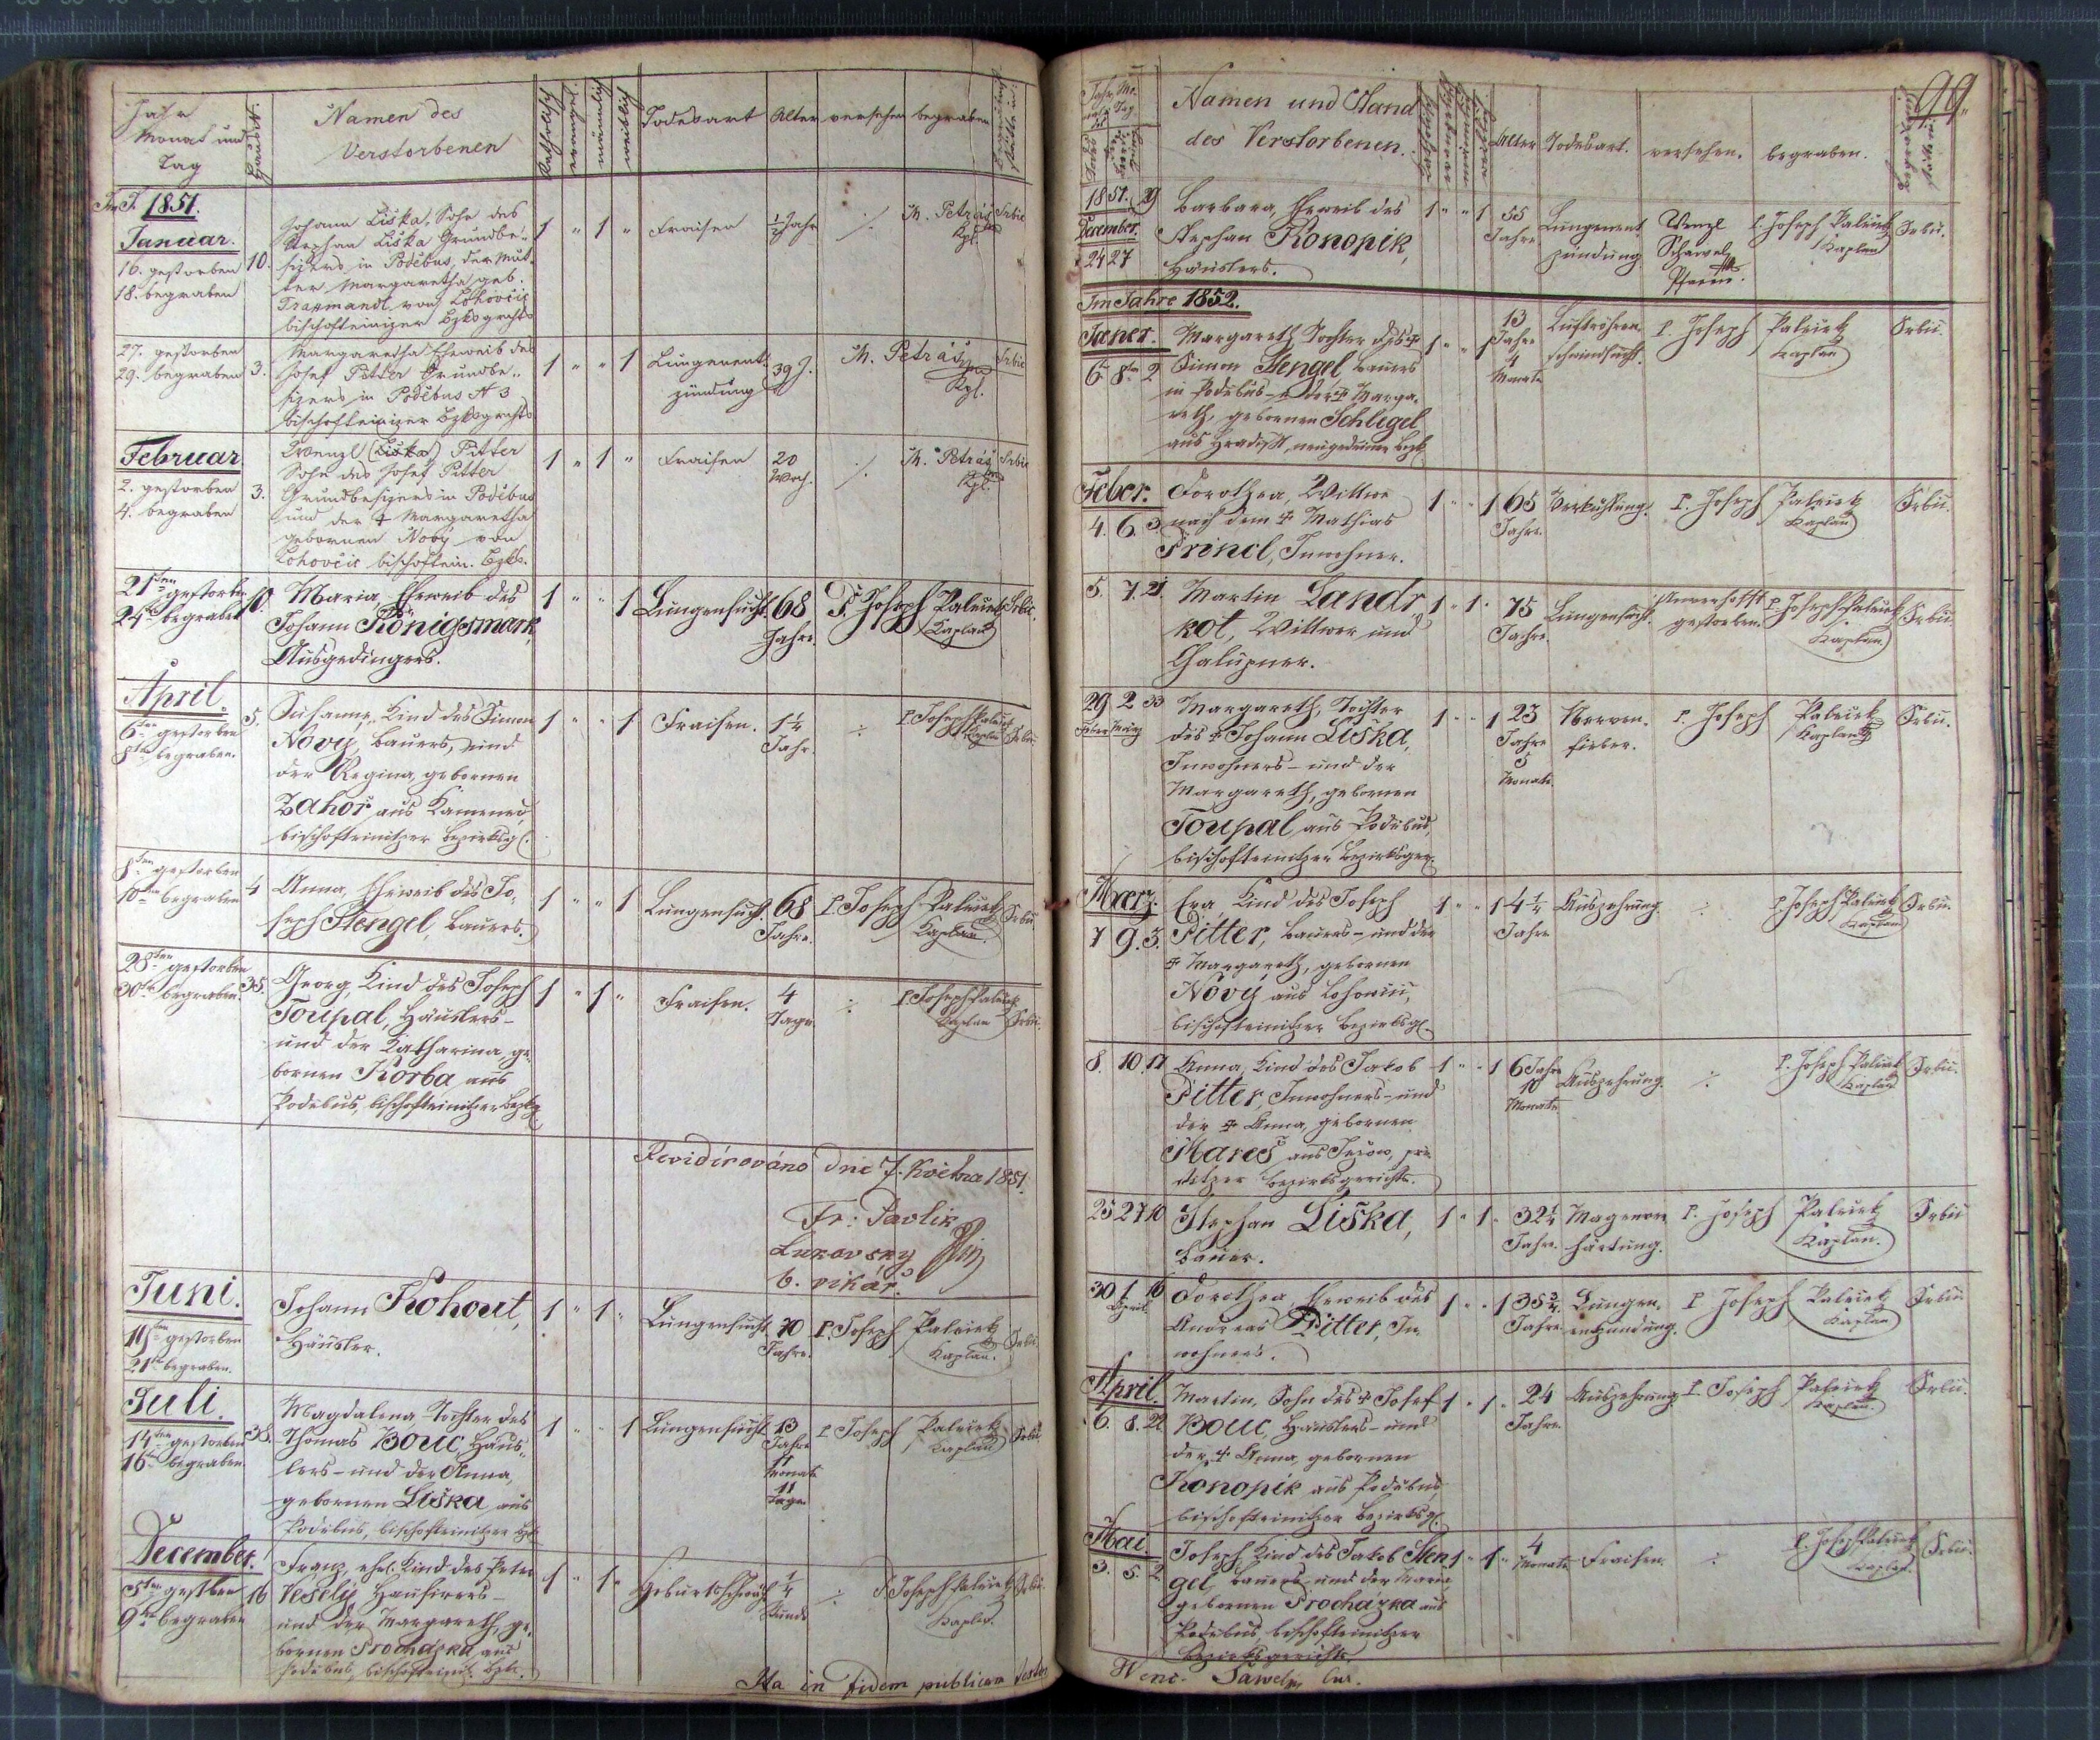 Jahr
Monat und
Tag
Hausnr.
Namen des
Verstorbenen
Katholisch
evangel.
männlich
weiblich
Todesart
Alter
versehen
begraben
Im J. 1851.
Januar.
16. gestorben
18. begraben
10.
Johann Liška, Sohn des
Stephan Liška Grundbe-
sizers in Poděbus, der Mut-
ter Margaretha geb.
von Lohovčic
bischofteinizer Bzksgrchts
1 " 1 "
Fraisen
½ Jahr
M. Petráš
Kpl.
Srbic
27. gestorben
29. begraben
3.
Margaretha Eheweib des
Josef Pitter Grundbe-
sizers in Poděbus N 3
bischofteinizer Bzksgrchts
1 " " 1
Lungenent-
zündung
39 J.
M. Petráš
Kpl.
Srbic
Februar
2. gestorben
4. begraben
3.
Wenzl (Liška) Pitter
Sohn des Josef Pitter
Grundbesizers in Poděbus
und der † Margaretha
gebornen Nový von
Lohovčic bischoftein. Bzks.
1 " 1 "
Fraisen
20
Woch.
M. Petráš
Kpl.
Srbic
21ten gestorben
24t begraben
10.
Maria, Eheweib des
Johann Königsmark,
Ausgedingers.
1 " " 1
Lungensucht.
68
Jahre.
P. Joseph Palriek
Kaplan
Srbic.
April.
6ten gestorben
8ten begraben.
5.
Susanna, Kind des Simon
Nový, Bauers, und
der Regina, gebornen
Zahoř aus
bischofteinitzer Bezirksg.
1 " " 1
Fraisen.
1¼
Jahr.
P. Joseph Palriek
Kaplan
Srbic.
8ten gestorben
10ten begraben
4
Anna, Eheweib des Jo-
seph Stengel, Bauers.
1 " " 1
Lungensucht.
68
Jahre.
P. Joseph Palriek
Kaplan.
Srbic.
28ten gestorben
30ten begraben.
35.
Georg, Kind des Joseph
Toupal, Häuslers-
und der Katharina, ge-
bornen Korba aus
Podiebus, bischofteinitzer Bezks
1 " 1 "
Fraisen.
4
Tage
P. Joseph Palriek
Kaplan
Srbic.
Revidirováno dne 7. Května 1851.
Fr: Pavlik
b. vikář.
Juni.
19ten gestorben
21ten begraben.
Johann Kohout,
Häusler.
1 " 1 "
Lungensucht
70
Jahre.
P. Joseph Palriek
Kaplan.
Srbic.
Juli.
14ten gestorben
16ten begraben.
38.
Magdalena Tochter des
Thomas Bouc, Häus-
lers- und der Anna,
gebornen Liška aus
Podiebus, bischofteinitzer Bzk
1 " " 1
Lungensucht
13
Jahre
11
Monate
11
Tage
P. Joseph Palriek
Kaplan
Srbic.
December.
5ten gestben
9ten begraben
16
Franz, ehel. Kind des Peter
Veselý, Hausirers-
und der Margareth, ge-
bornen Procházka aus
Podiebus, bischofteinit. Bzk.
1 " 1 "
Geburtsschwäch
¼
Stunde
P. Joseph Palriek
Kaplan.
Srbic.
Ita in fidem publicam testor
99.
Namen und Stand
des Verstorbenen.
Alter
Todesart.
versehen.
begraben.
1851.
December.
24 27
29
Barbara, Eheweib des
Stephan Konopik,
Häuslers.
1 " " 1
55
Jahre
Lungenent-
zündung
Wenzl
Schawel
Pfarrer.
P. Joseph Palriek
Kaplan
Srbic.
Im Jahre 1852.
Jäner.
6. 8ten 2
Margareth, Tochter des †
Simon Stengel, Bauers
in Podiebus- u. der † Marga-
reth, gebornen Schlegel
aus Hradisst, neugedeiner Bezk.
1 " " 1
13
Jahre
4
Monate
Luftröhren-
schwindsucht.
P. Joseph Palriek
Kaplan
Srbic.
Feber.
4. 6. 3.
Dorothea, Wittwe
nach dem † Mathias
Princl, Inwohner.
1 " " 1
65
Jahre.
Verkühlung.
P. Joseph Palriek
Kaplan
Srbic.
5. 7. 21
Martin Landr-
kot, Wittwer und
Chalupner.
1 " 1 "
75
Jahre.
Lungensucht.
Unverhofft
gestorben.
P. Joseph Palriek
Kaplan
Srbic.
29 2 33
Feber März
Margareth, Tochter
des † Johann Liška,
Inwohners- und der
Margareth, gebornen
Toupal aus Podiebus,
bischofteinitzer Bezirksger.
1 " " 1
23
Jahre
5
Monate.
Nerven-
fieber.
P. Joseph Palriek
Kaplan
Srbic.
Maerz.
7 9. 3.
Eva Kind des Joseph
Pitter, Bauers- und der
† Margareth, gebornen
Nový aus Lohowčic,
bischofteinitzer Bezirksg.
1 " " 1
4¼
Jahre
Auszehrung.
P. Joseph Palriek
Kaplan
Srbic.
8. 10. 17
Anna, Kind des Jakob
Pitter, Inwohners- und
der † Anna, gebornen
Mareš aus
Bezirksgerichts.
1 " " 1
6 Jahre
10
Monate
Auszehrung.
P. Joseph Palriek
Kaplan
Srbic.
25 27 10
Stephan Liška,
Bauer.
1 " 1 "
32¼
Jahre.
Magenver-
härtung.
P. Joseph Palriek
Kaplan.
Srbic
30 1. 16
April
Dorothea, Eheweib des
Andreas Pitter, In-
wohners.
1 " " 1
35¾
Jahre.
Lungen-
entzündung.
P. Joseph Palriek
Kaplan
Srbic
April.
6. 8. 22
Martin, Sohn des † Josef
Bouc, Häuslers- und
der † Anna, gebornen
Konopik aus Podiebus
bischofteinitzer Bezirksg.
1 " 1 "
24
Jahre.
Auszehrung
P. Joseph Palriek
Kaplan.
Srbic.
Mai.
3. 5. 2
Joseph, Kind des Jakob Sten-
gel, Bauers- und der Maria,
gebornen Procházka aus
Podiebus, bischofteinitzer
Bezirksgerichts.
1 " 1 "
4
Monate
Fraisen.
P. Joseph Palriek
Kaplan.
Srbic.
Wenc. Sawel Cur.